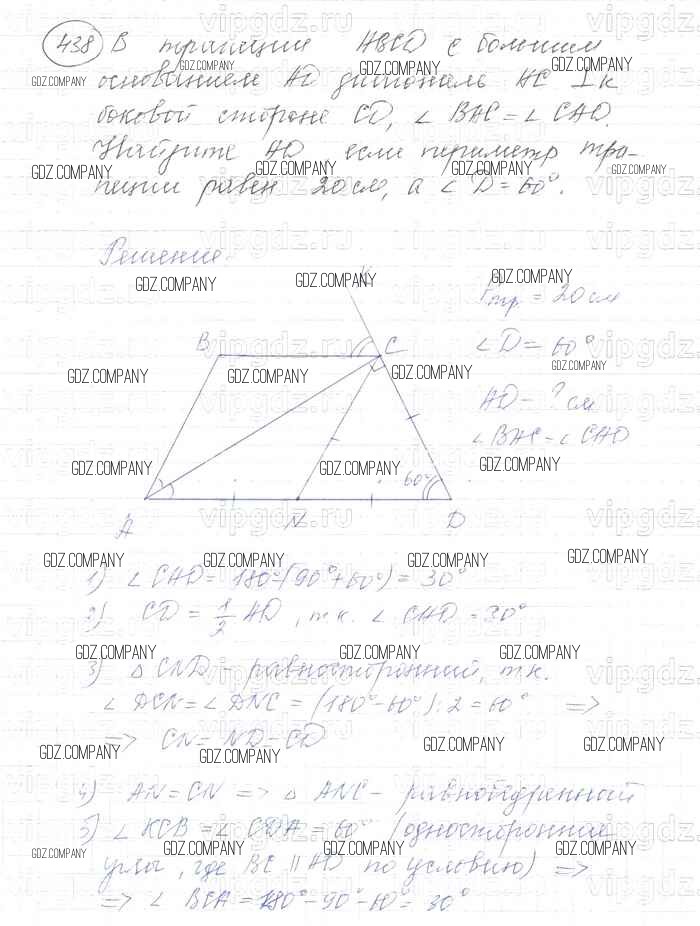 438 В трапеции ABCD с большим
основанием AD диагональ AC ⊥ к
боковой стороне CD, ∠ BAC = ∠ CAD.
Найдите AD если периметр тра-
пеции равен 20 см, а ∠ D = 60°.
Решение.
Pтр. = 20 см
∠ D = 60°
AD - ? см
∠ BAC = ∠ CAD
K
B C
60°
A N D
1) ∠ CAD = 180°-(90°+60°) = 30°
2) CD = 1/2 AD, т.к. ∠ CAD = 30°
3) △ CND - равносторонний, т.к.
∠ DCN = ∠ DNC = (180°-60°):2 = 60° =>
=> CN = ND = CD
4) AN = CN => △ ANC - равнобедренный
5) ∠ KCB = ∠ CDA = 60° (односторонние
углы, где BC || AD по условию) =>
=> ∠ BCA = 180°-90°-60° = 30°
GDZ.COMPANY
vipgdz.ru